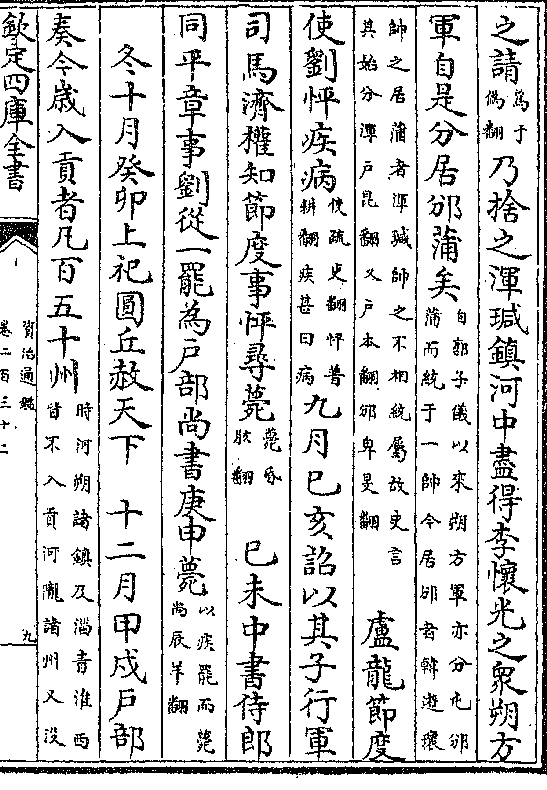 之請為于偽翻乃捨之渾瑊鎮河中盡得李懷光之衆朔方
軍自是分居邠蒲矣自郭子儀以來朔方軍亦分屯邠蒲而統于一帥今居邠者韓遊瓌
帥之居蒲者渾瑊帥之不相統屬故史言其始分渾戸昆翻又戸本翻邠卑旻翻 盧龍節度
使劉怦疾病使疏吏翻怦普耕翻疾甚曰病九月已亥詔以其子行軍
司馬濟權知節度事怦尋薨薨呼肱翻 已未中書侍郎
同平章事劉從一罷為戸部尚書庚申薨以疾罷而薨尚辰羊翻
冬十月癸卯上祀圓丘赦天下 十二月甲戌戸部
奏今歲入貢者凡百五十州時河朔諸鎮及淄青淮西皆不入貢河隴諸州又沒
欽定四庫全書
資治通鑑
卷二百三十二
九